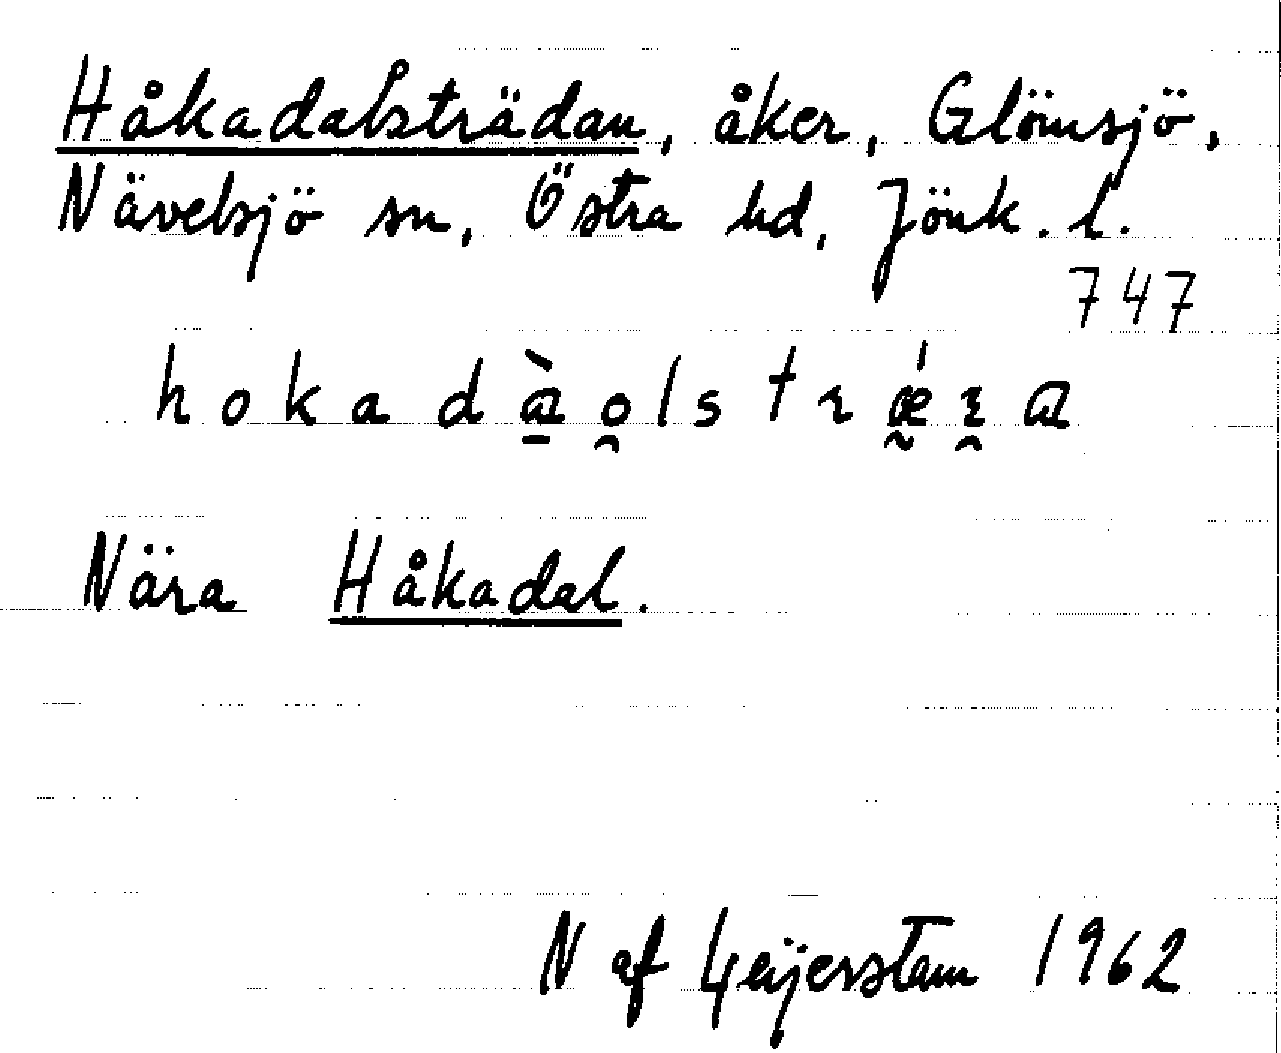 Håkadalsträdan, åker, Glömsjö,
Nävelsjö sn, Östra hd, Jönk. l.
747
Nära Håkadal.
N af Geijerstam 1962